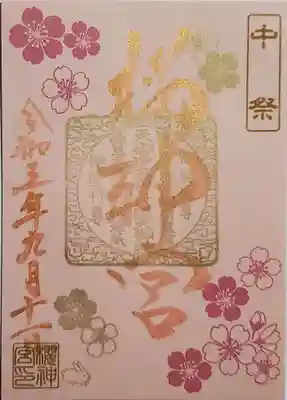 中祭
櫻神宮
令和三年九月十一日
櫻神
宮印